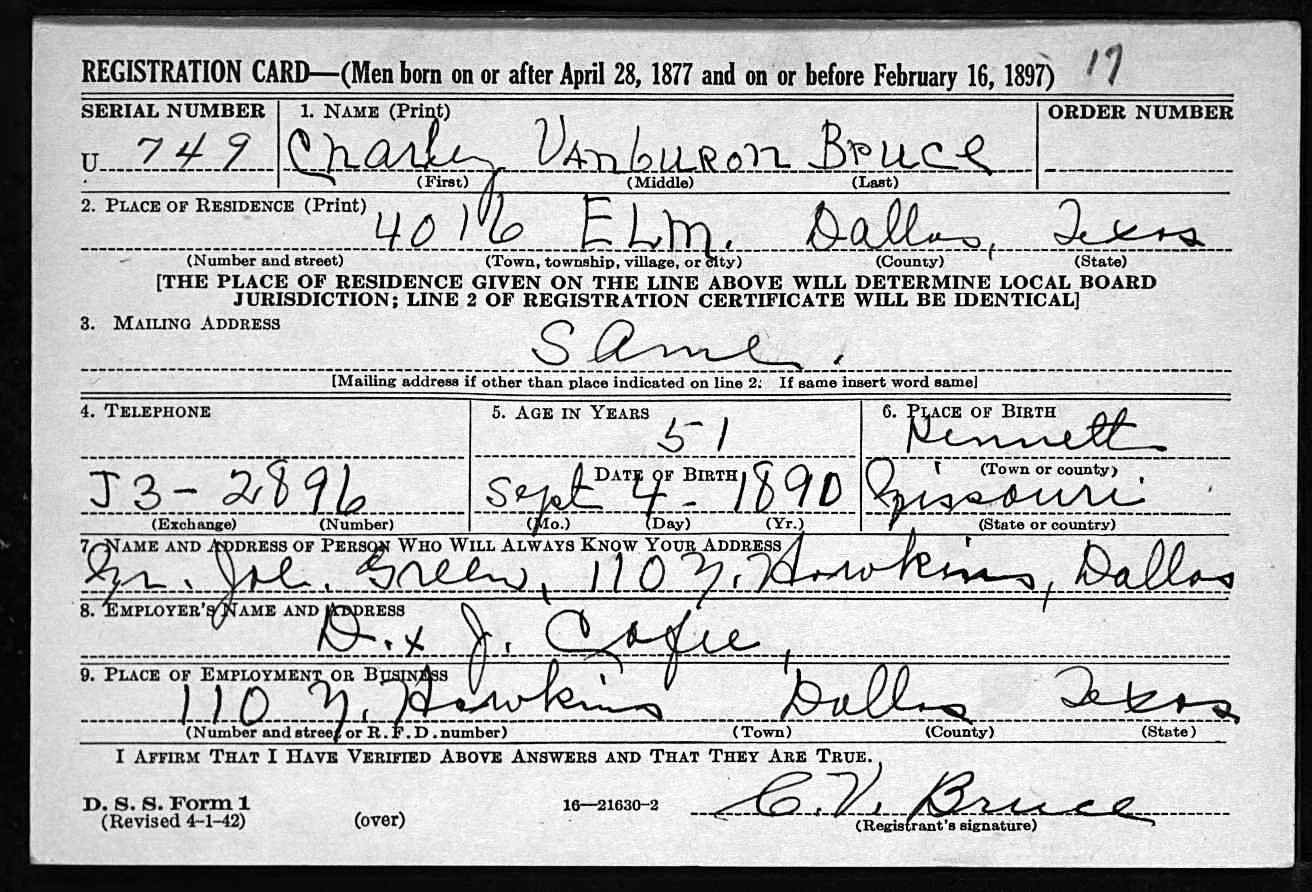 REGISTRATION CARD—(Men born on or after April 28, 1877 and on or before February 16, 1897) 17
SERIAL NUMBER 1. NAME (Print) ORDER NUMBER
U 749 Charley VanbuRon BRUCE
(First) (Middle) (Last)
2. PLACE OF RESIDENCE (Print)
4016 ELM. Dallas, Texas
(Number and street) (Town, township, village, or city) (County) (State)
[THE PLACE OF RESIDENCE GIVEN ON THE LINE ABOVE WILL DETERMINE LOCAL BOARD
JURISDICTION; LINE 2 OF REGISTRATION CERTIFICATE WILL BE IDENTICAL]
3. MAILING ADDRESS
Same.
[Mailing address if other than place indicated on line 2. If same insert word same]
4. TELEPHONE 5. AGE IN YEARS 6. PLACE OF BIRTH
51 Kennett
DATE OF BIRTH (Town or county)
J3-2896 Sept 4-1890 Missouri
(Exchange) (Number) (Mo.) (Day) (Yr.) (State or country)
7. NAME AND ADDRESS OF PERSON WHO WILL ALWAYS KNOW YOUR ADDRESS
Mr. Joe. Green, 110 N. Hawkins, Dallas
8. EMPLOYER'S NAME AND ADDRESS
D. x J. Cafe,
9. PLACE OF EMPLOYMENT OR BUSINESS
110 N. Hawkins Dallas Texas
(Number and street or R. F. D. number) (Town) (County) (State)
I AFFIRM THAT I HAVE VERIFIED ABOVE ANSWERS AND THAT THEY ARE TRUE.
D. S. S. Form 1 16—21630-2 C. V. Bruce
(Revised 4-1-42) (over) (Registrant's signature)